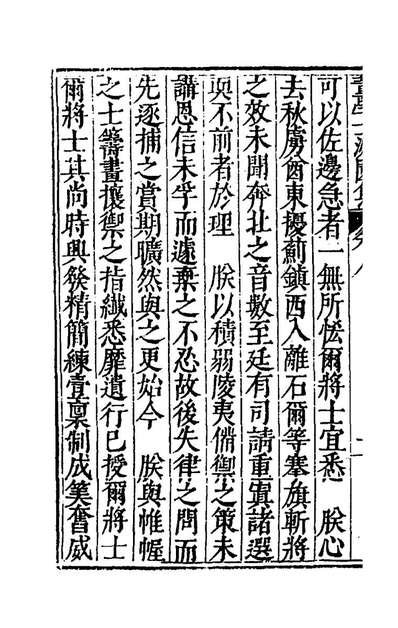 可以佐邊急者一無所恡爾將士宜悉　朕心
去秋虜酋東擾薊鎮西入離石爾等搴旗斬將
之效未聞奔北之音數至廷有司請重寘諸選
耎不前者於理　朕以積弱陵夷備禦之策未
講恩信未孚而遽棄之不忍故後失律之問而
先逐捕之賞期曠然與之更始今　朕與帷幄
之士籌畫攘禦之指纖悉靡遺行已授爾將士
爾將士其尚時興發精簡練壹稟制成筭奮威